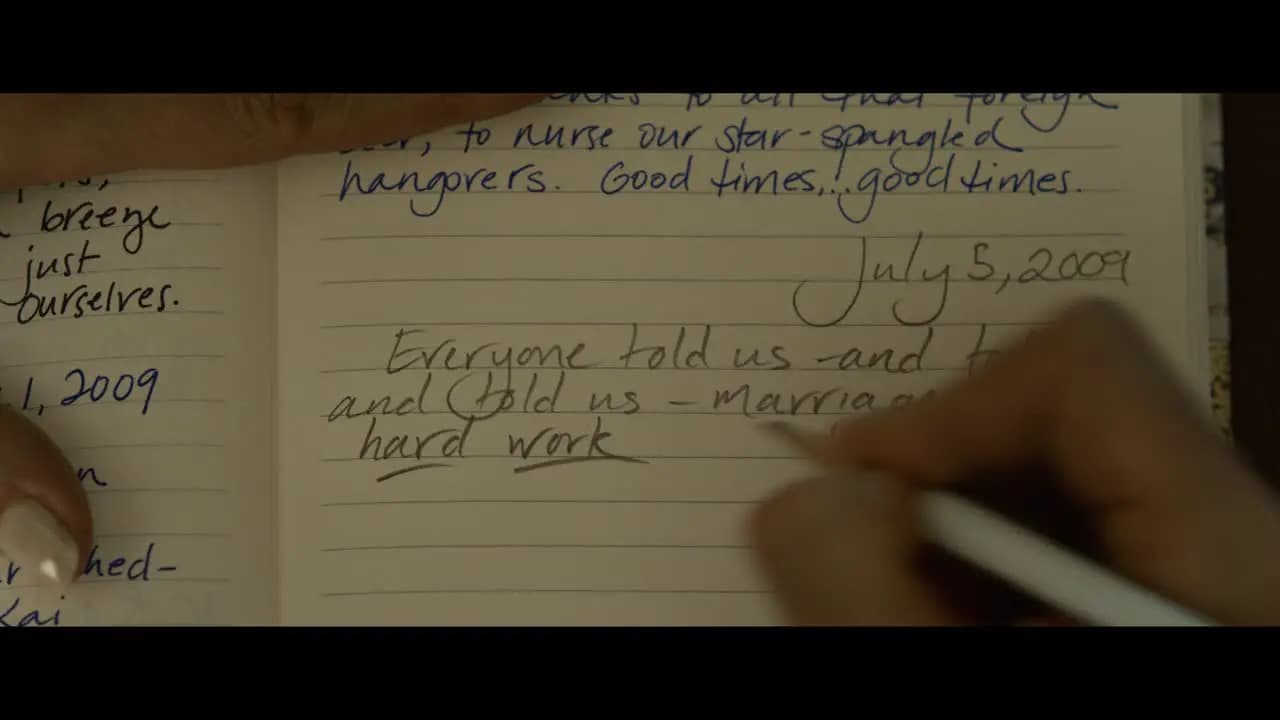 breeze
just
ourselves.
1, 2009
hed-
Kai
to all that foreign
to nurse our star-spangled
hangovers. Good times... good times.
July 5, 2009
Everyone told us -and
and told us - marriage
hard work